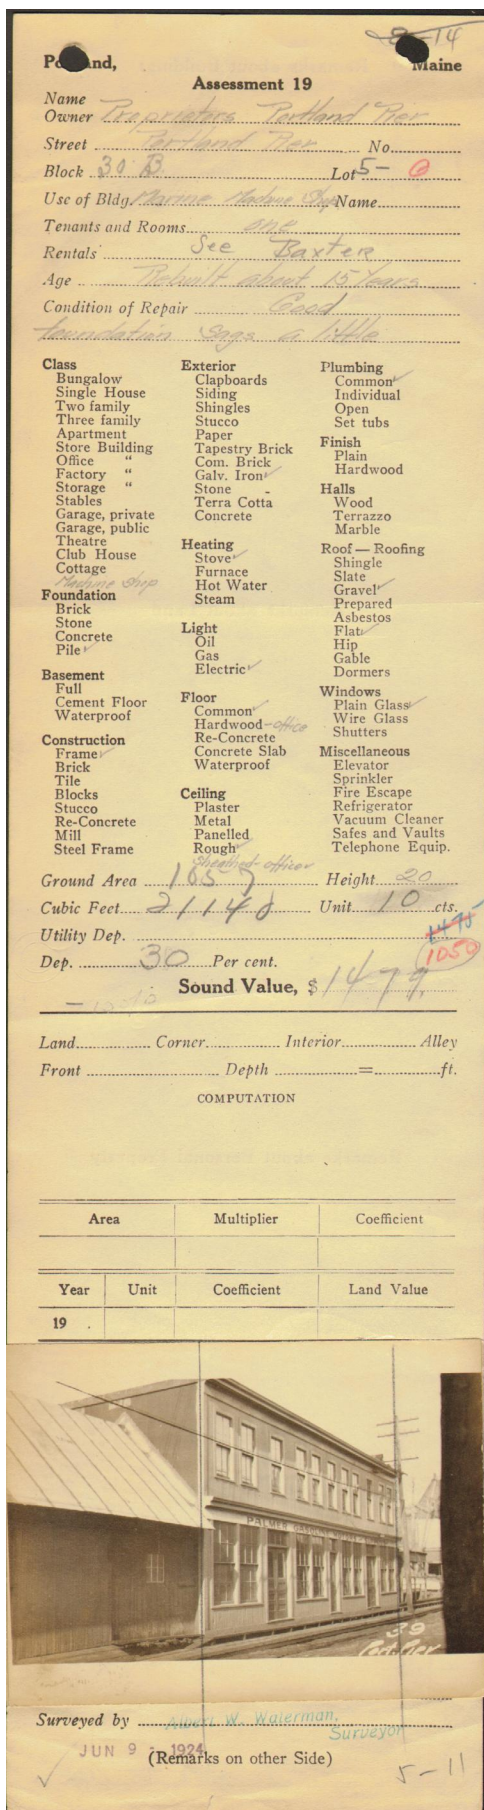 8-14
Portland, Maine
Assessment 19
Name
Owner Proprietors Portland Pier
Street Portland Pier No.
Block 30 B Lot 5-
Use of Bldg. Marine Machine Shop Name
Tenants and Rooms one
Rentals See Baxter
Age Rebuilt about 15 Years
Condition of Repair Good
foundation sags a little
Class
Bungalow
Single House
Two family
Three family
Apartment
Store Building
Office "
Factory "
Storage "
Stables
Garage, private
Garage, public
Theatre
Club House
Cottage
Machine Shop
Foundation
Brick
Stone
Concrete
Pile ✓
Basement
Full
Cement Floor
Waterproof
Construction
Frame ✓
Brick
Tile
Blocks
Stucco
Re-Concrete
Mill
Steel Frame
Exterior
Clapboards
Siding
Shingles
Stucco
Paper
Tapestry Brick
Com. Brick
Galv. Iron ✓
Stone -
Terra Cotta
Concrete
Heating
Stove ✓
Furnace
Hot Water
Steam
Light
Oil
Gas
Electric ✓
Floor
Common ✓
Hardwood -office
Re-Concrete
Concrete Slab
Waterproof
Ceiling
Plaster
Metal
Panelled
Rough ✓
Sheathed-offices
Plumbing
Common ✓
Individual
Open
Set tubs
Finish
Plain
Hardwood
Halls
Wood
Terrazzo
Marble
Roof — Roofing
Shingle
Slate
Gravel ✓
Prepared
Asbestos
Flat ✓
Hip
Gable
Dormers
Windows
Plain Glass ✓
Wire Glass
Shutters
Miscellaneous
Elevator
Sprinkler
Fire Escape
Refrigerator
Vacuum Cleaner
Safes and Vaults
Telephone Equip.
Ground Area 1057 Height 20
Cubic Feet 21140 Unit 10 cts.
Utility Dep. 1475
1050
Dep. 30 Per cent.
Sound Value, $ 1479.
Land Corner Interior Alley
Front Depth = ft.
COMPUTATION
Area Multiplier Coefficient
Year Unit Coefficient Land Value
19 .
PALMER GASOLINE MOTORS
39
Port. Pier
Surveyed by Albert W. Waterman,
Surveyor
JUN 9 - 1924
(Remarks on other Side)
✓ 5-11